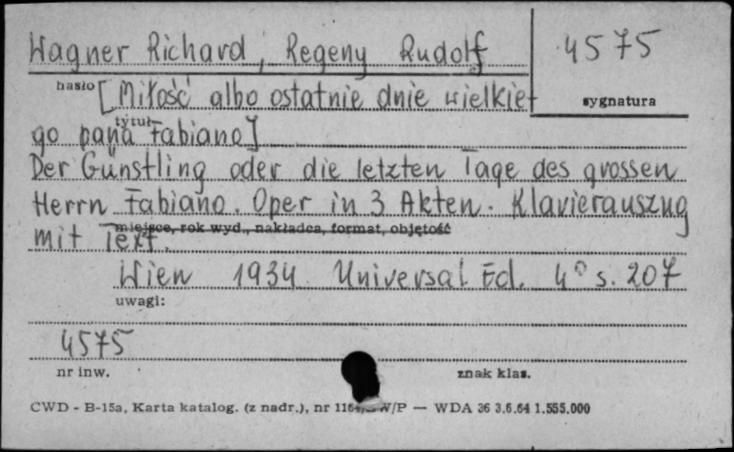 Wagner Richard, Regeny Rudolf
4575
hasło [Miłość albo ostatnie dnie wielkie
sygnatura
tytuł
go pana Fabiano]
Der Günstling oder die letzten Tage des grossen
Herrn Fabiano. Oper in 3 Akten. Klavierauszug
miejsce, rok wyd., nakładca, format, objętość
mit Text.
Wien 1934 Universal Ed. 4° s. 207
uwagi:
4575
nr inw.
znak klas.
CWD - B-15a, Karta katalog. (z nadr.), nr W/P — WDA 36 3.6.64 1.555.000